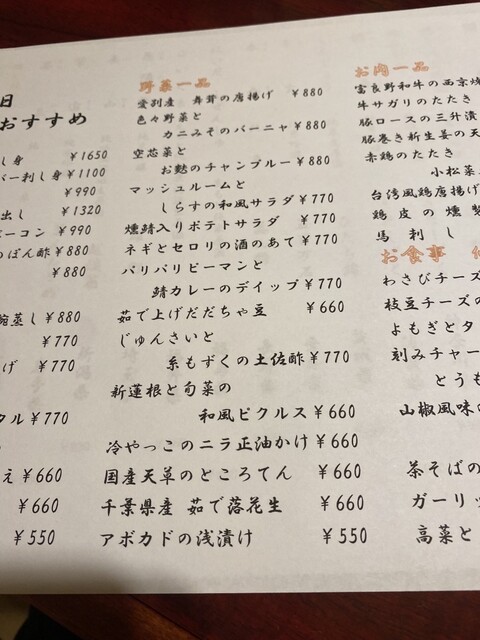 日
おすすめ
し身 ￥1650
バー刺し身￥1100
￥990
出し ￥1320
ーコン ￥990
ぽん酢￥880
￥880
蒸し￥880
￥770
げ ￥770
タル￥770
え￥660
￥660
￥550
野菜一品
愛別産 舞茸の唐揚げ ￥880
色々野菜と
カニみそのバーニャ ￥880
空芯菜と
お麩のチャンプルー￥880
マッシュルームと
しらすの和風サラダ￥770
燻鯖入りポテトサラダ ￥770
ネギとセロリの酒のあて￥770
パリパリピーマンと
鯖カレーのディップ￥770
茹で上げだだちゃ豆 ￥660
じゅんさいと
糸もずくの土佐酢￥770
新蓮根と旬菜の
和風ピクルス￥660
冷やっこのニラ正油かけ￥660
国産天草のところてん ￥660
千葉県産 茹で落花生 ￥660
アボカドの浅漬け ￥550
お肉一品
富良野和牛の西京焼
牛サガリのたたき
豚ロースの三升漬
豚巻き新生姜の天
赤鶏のたたき
小松菜
台湾風鶏唐揚げ
鶏皮の燻製
馬刺し
お食事
わさびチーズ
枝豆チーズの
よもぎとタ
刻みチャー
とうも
山椒風味の
茶そばの
ガーリッ
高菜と